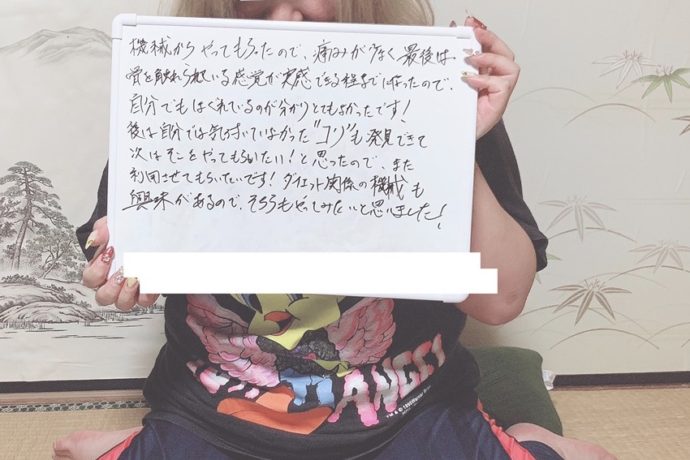 機械からやってもらったので、痛みが少なく最後は
骨を触れられている感覚が実感できる程までに作ったので、
自分でもほぐれているのが分かりとてもよかったです!
後は自分では気付いていなかった"コリ"も発見できて
次はそこをやってもらいたい!と思ったので、また
利用させてもらいたいです!ダイエット関係の機械も
興味があるので、そちらもやってみたいと思いました!
ANGEL